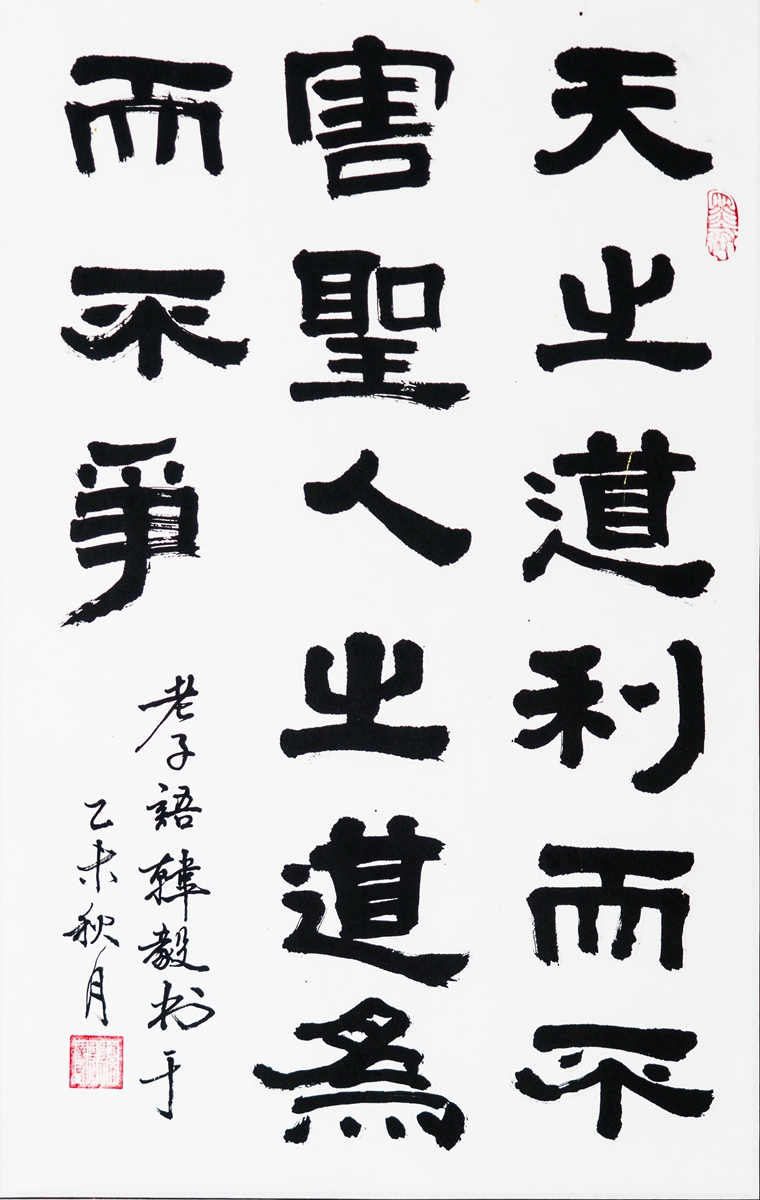 天之道利而不
害聖人之道為
而不爭
老子語韓毅书于
乙未秋月